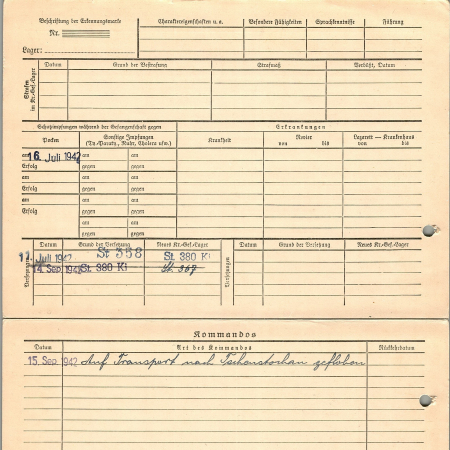 Beschriftung der Erkennungsmarke
Nr.
Lager:
Charaktereigenschaften u. a.
Besondere Fähigkeiten
Sprachkenntnisse
Führung
Strafen im Kr.-Gef.-Lager
Datum
Grund der Bestrafung
Strafmaß
Verbüßt, Datum
Schutzimpfungen während der Gefangenschaft gegen
Erkrankungen
Pocken
Sonstige Impfungen
(Ty.-Paraty., Ruhr, Cholera usw.)
Krankheit
Revier
von bis
Lazarett — Krankenhaus
von bis
am 16. Juli 1942
am
Erfolg
gegen
am
am
Erfolg
gegen
am
am
Erfolg
gegen
am
gegen
am
gegen
Versetzungen
Datum
Grund der Versetzung
Neues Kr.-Gef.-Lager
Versetzungen
Datum
Grund der Versetzung
Neues Kr.-Gef.-Lager
Juli 1942
St 358
St. 380 Ki
14. Sep. 1942
St. 380 Ki
St. 367
Kommandos
Datum
Art des Kommandos
Rückkehrdatum
15. Sep. 1942
Auf Transport nach Tschenstochau geflohen